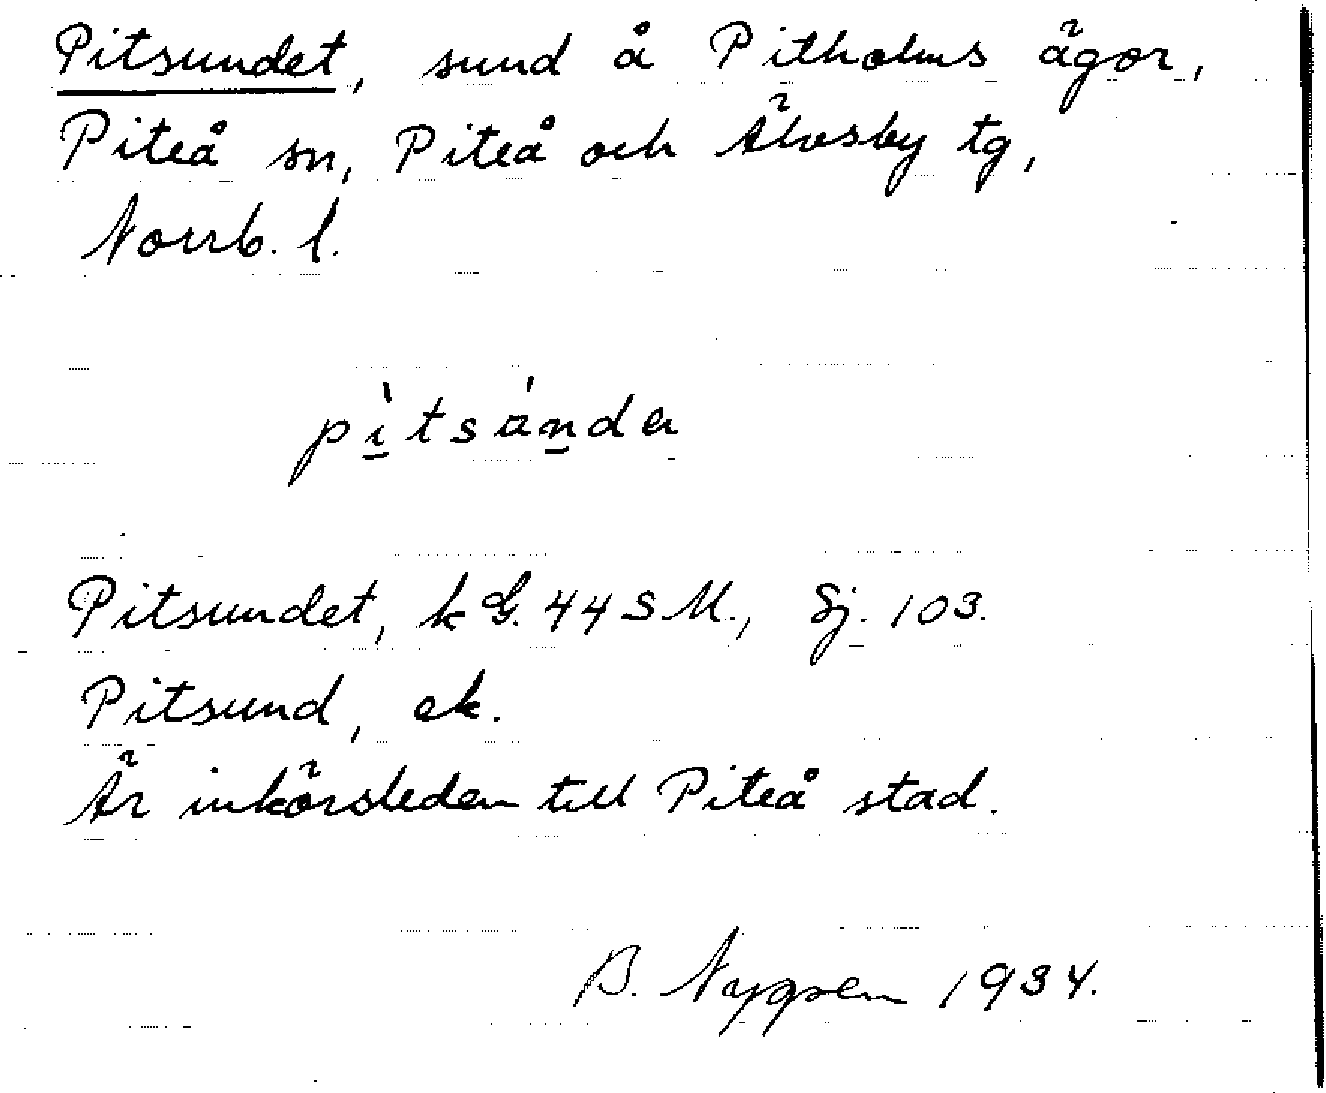 Pitsundet, sund å Pitholms ägor,
Piteå sn, Piteå och Älvsby tg,
Norrb. l.
pìtsánda
Pitsundet, k G. 44 S M., Sj. 103.
Pitsund, ek.
Är inkörsleden till Piteå stad.
B. Nygren 1934.